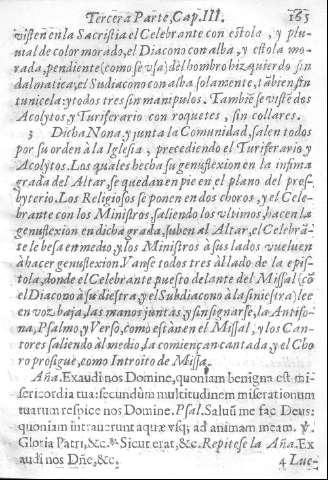 Tercera Parte, Cap. III. 165
visten en la Sacristia el Celebrante con estola, y plu-
uial de color morado, el Diacono con alba, y estola mo-
rada, pendiente (como se vsa) del hombro hizquierdo sin
dalmatica, et Sudiacono con alba solamente, tãbien sin
tunicela: y todos tres sin manipulos. Tambiẽ se vistẽ dos
Acolytos, y Turiferario con roquetes, sin collares.
3 Dicha Nona, y junta la Comunidad, salen todos
por su orden à la Iglesia, precediendo el Turiferario, y
Acolytos. Los quales hecha su genuflexion en la infima
grada del Altar, se quedan en pie en el plano del pres-
byterio. Los Religiosos se ponen en dos choros, y el Cele-
brante con los Ministros, saliendo los vltimos, hacen la
genuflexion en dicha grada, suben al Altar, el Celebrã-
te le besa en medio, y los Ministros à sus lados vueluen
à hacer genuflexion. Vanse todos tres àl lado de la epis-
tola, donde el Celebrante puesto delante del Missal (cõ
el Diacono à su diestra, y el Subdiacono à la siniestra) lee
en voz baja, las manos juntas, y sin signarse, la Antifo-
na, Psalmo, y Verso, como estàn en el Missal, y los Can-
tores saliendo àl medio, la comiençan cantada, y el Cho
ro prosigue, como Introito de Missa.
Aña. Exaudi nos Domine, quoniam benigna est mi-
sericordia tua: secundùm multitudinem miserationum
tuarum respice nos Domine. Psal. Saluũ me fac Deus:
quoniam intrauerunt aquæ vsq; ad animam meam. ℣.
Gloria Patri, &c. ℟. Sicut erat, &c. Repitese la Aña. Ex
audi nos Dñe, &c. 4 Lue-